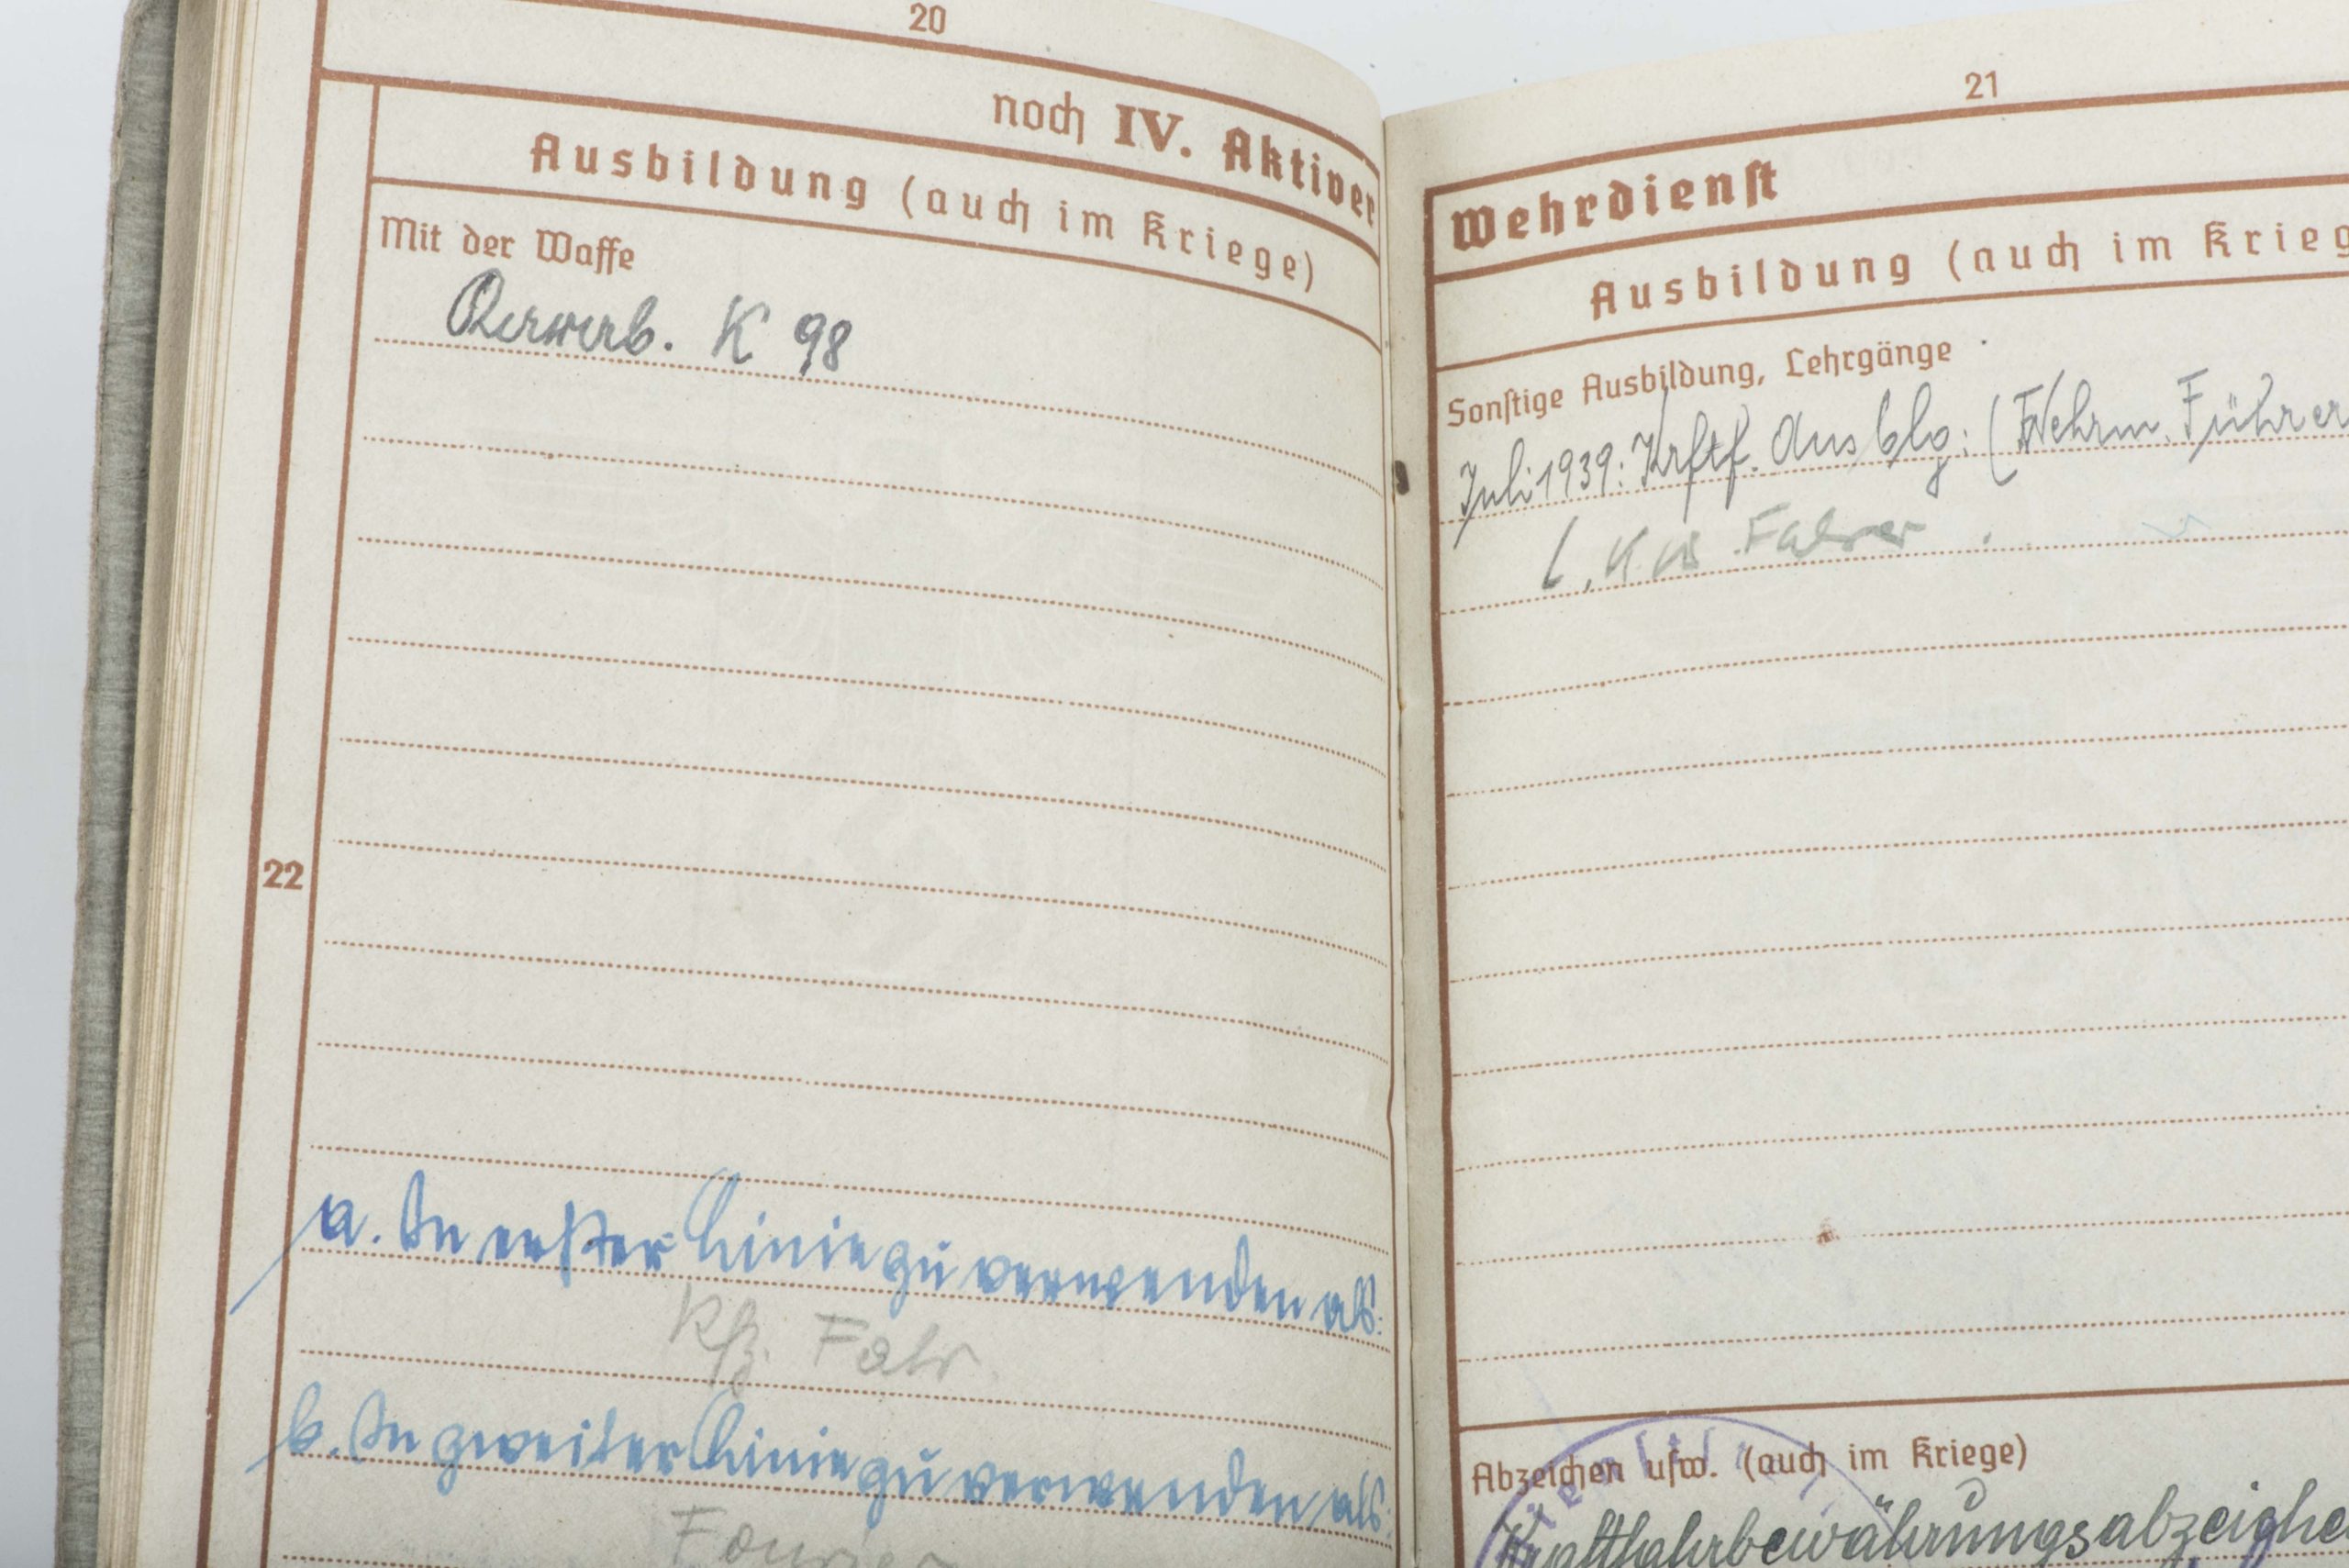 20
noch IV. Aktiver
Ausbildung (auch im Kriege)
Mit der Waffe
K 98
22
a. In erster Linie zu verwenden als:
Kf. Fahr.
b. In zweiter Linie zu verwenden als:
Fourier
21
Wehrdienst
Ausbildung (auch im Krieg
Sonstige Ausbildung, Lehrgänge
Juli 1939: Krftf. Ausblg: (Wehrm. Führer
l. Kw Fahrer
Abzeichen usw. (auch im Kriege)
Kraftfahrbewährungsabzeiche